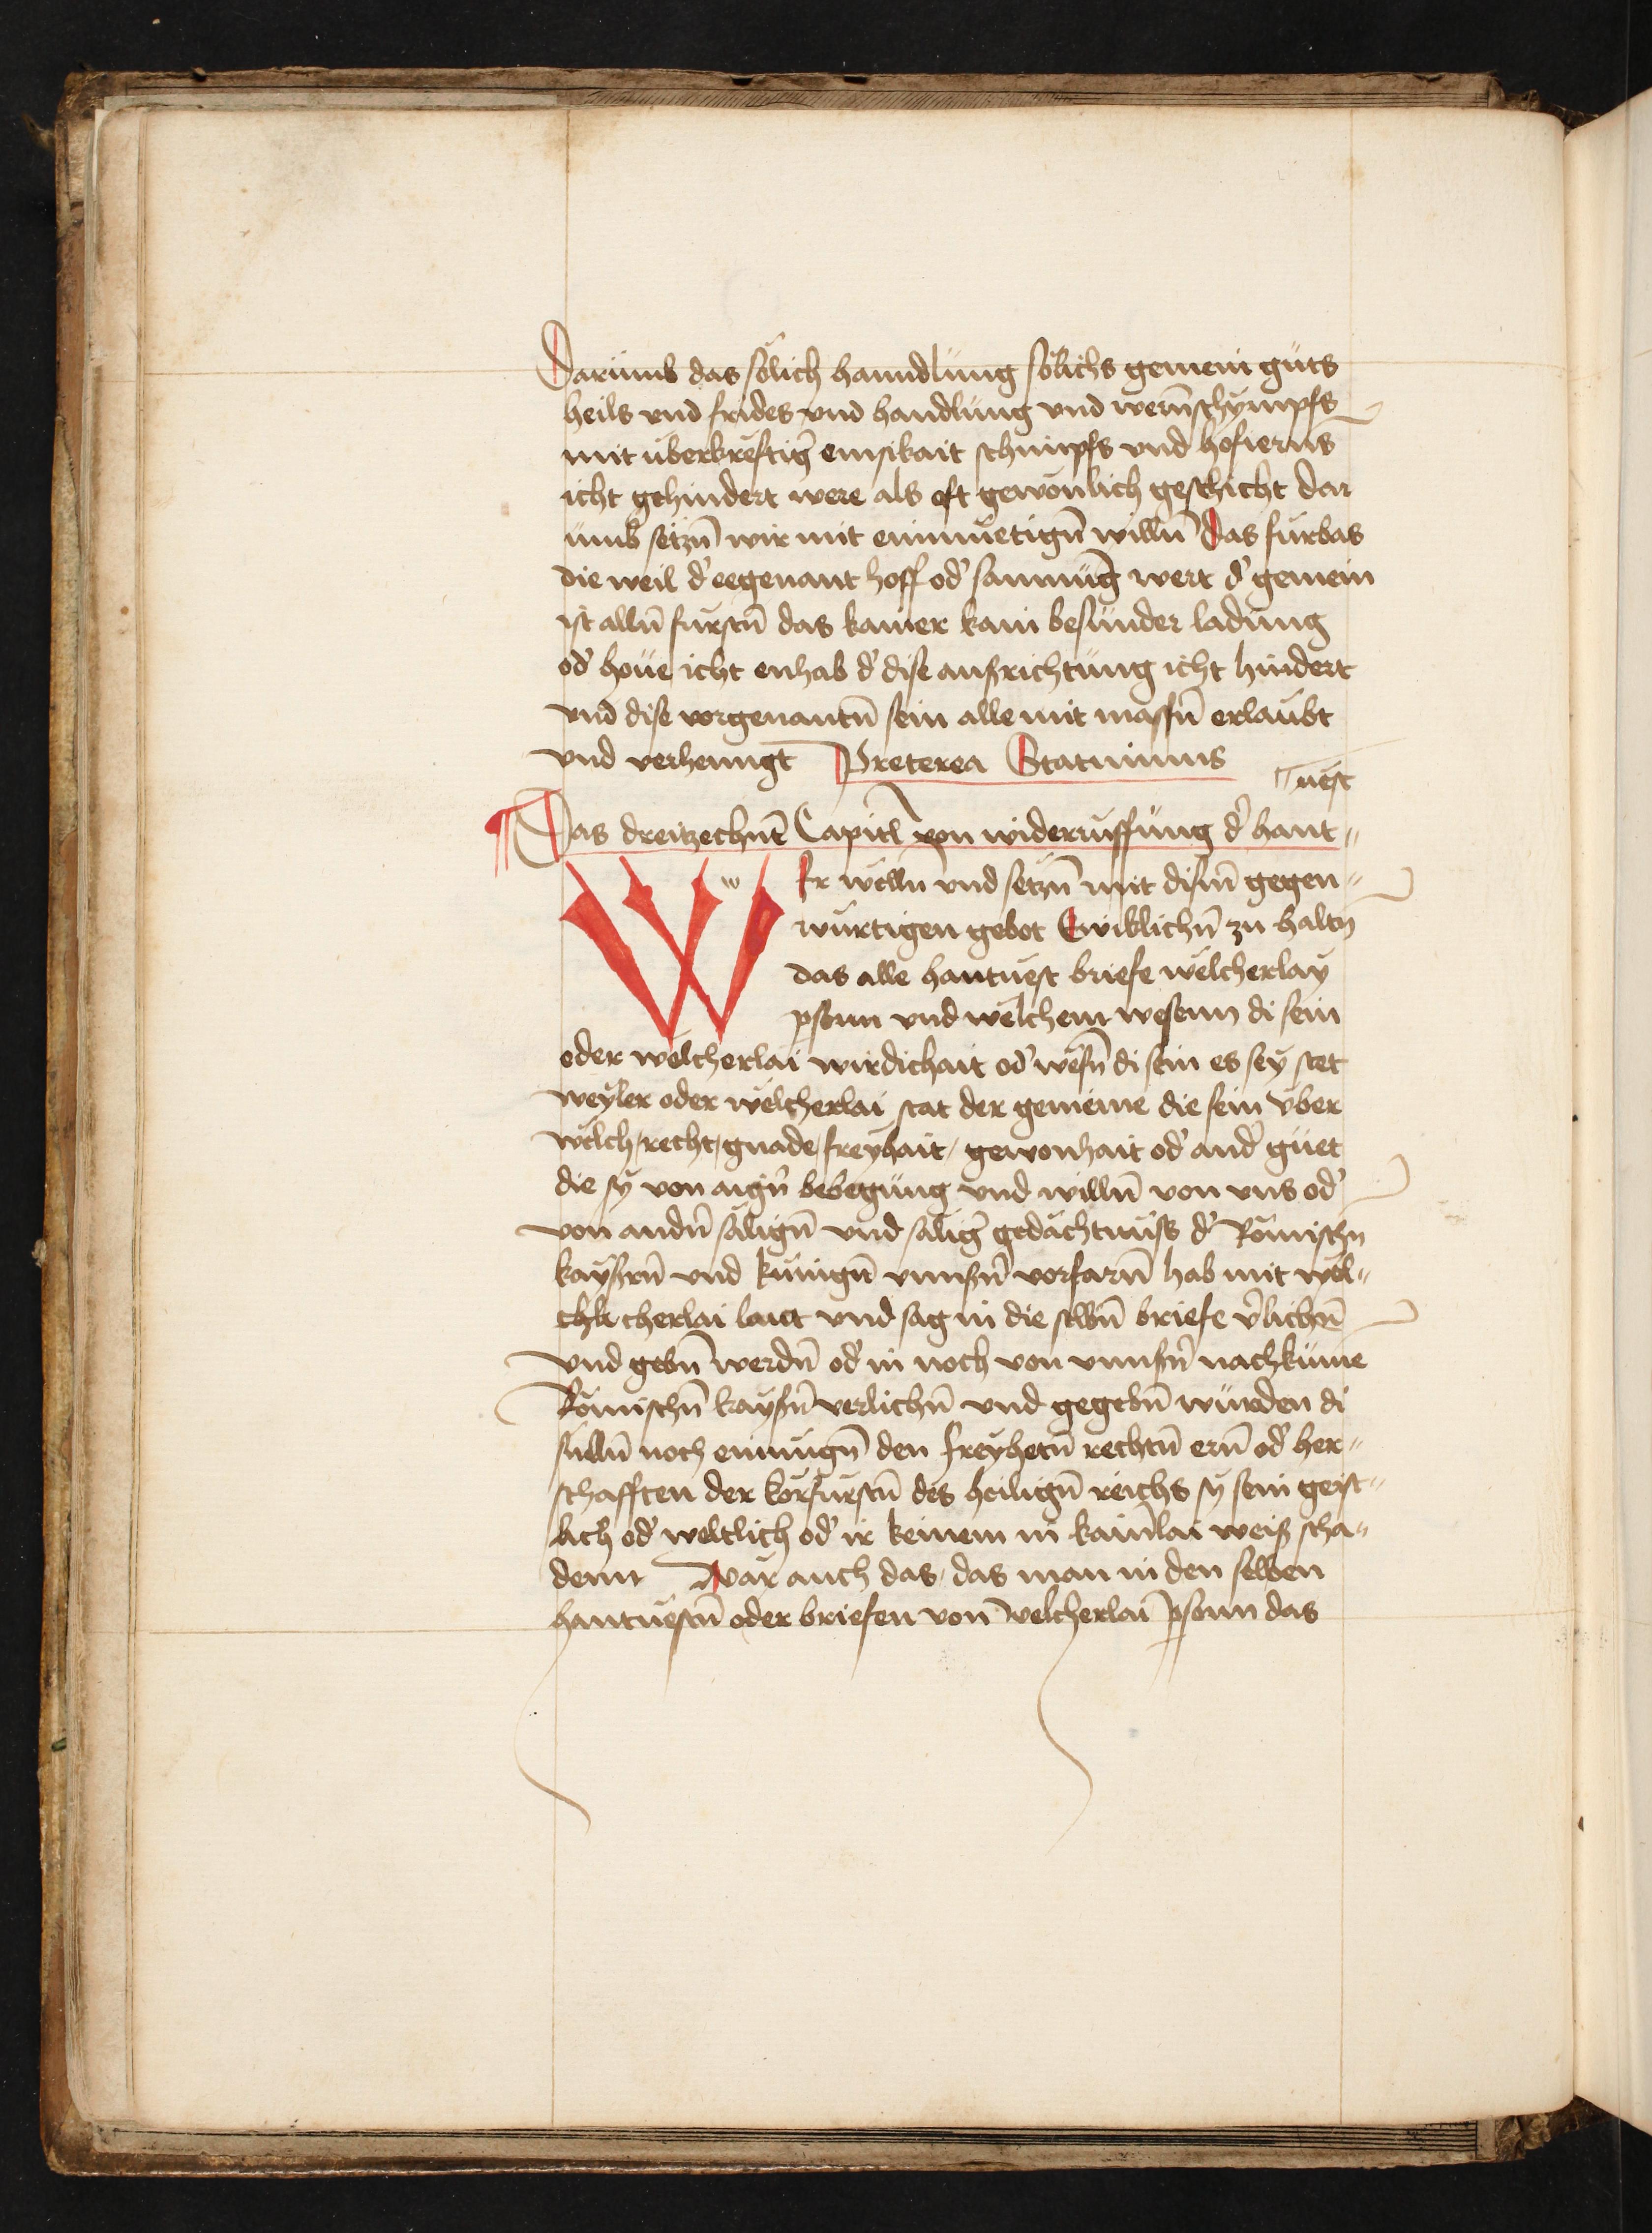 Darümb das sölich hanndlüng sölichs gemein güts
heils vnd frides vnd handlüng vnd wernscһympfs
mit überkreftig̃ emsikait schimpfs vnd hofierns
icht gehindert were als oft gewönlich geschicht dar
ümb setzn̄ wir mit einmüetign̄ willn̄ das fürbas
die weil d' eegenant hoff od' sammūg wert d' gemein
ist alln̄ fürstn̄ das kainer kain besünder ladüng
od' houe icht enhab d' dise ausrichtüng icht hindert
vnd dise vorgenantn̄ sein alle mit massn̄ erlaubt
vnd verhenngt Preterea Statuimus
uest
Das dreitzechnt̄ Capitl von widerrüffüng d' hant
WIr welln vnd setzn̄ mit dism̄ gegen
würtigen gebot Ewiklichn̄ zu haltn̄
das alle hantuest briefe welcherlay
psonn vnd welchem wesenn di sein
oder welcherlai wirdichait od' wesn̄ di sein es sey stet
weyler oder welcherlai stat der gemeine die sein über
welch, recht, gnade, freyhait, gewonhait od' and' güet
die sy von aign̄ bebegüng vnd willn̄ von vns od'
von andn̄ sälign̄ vnd sälig̃ gedächtnüss d' Römischn̄
kaysern̄ vnd künign̄ vnnsern̄ vorfarn̄ hab mit wel
chle cherlai laut vnd sag in die selbn̄ briefe v̄lichn̄
vnd gebn̄ werdn̄ od' in noch von vnnsern̄ nachkume
Römischn̄ kaysern̄ verlichn̄ vnd gegebn̄ würden di
sülln̄ noch enmügn̄ den freyhetn̄ rechtn̄ ern̄ od' her
schafften der korfürstn̄ des heilign̄ reichs sy sein geist
lich od' weltlich od' ir keinem in kainlai weiß scha
denn Wär auch das, das man in den selben
hantuestn̄ oder briefen von welcherlai psonn das